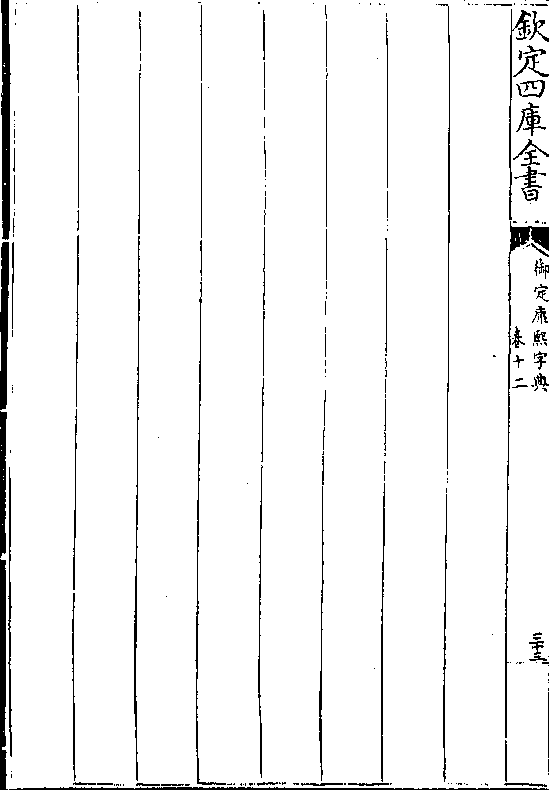 欽定四庫全書
御定康熙字典
卷十二
三十三